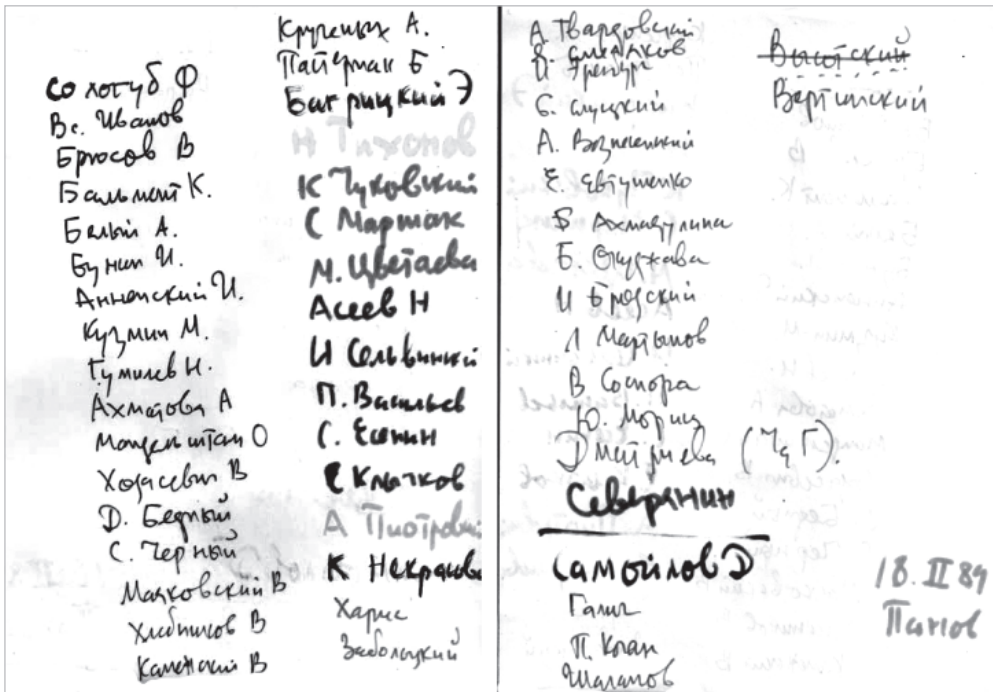 Сологуб Ф
Вс. Иванов
Брюсов В
Бальмонт К.
Белый А.
Бунин И.
Анненский И.
Кузмин М.
Гумилев Н.
Ахматова А
Мандельштам О
Ходасевич В
Д. Бедный
С. Черный
Маяковский В
Хлебников В
Каменский В
Крученых А.
Пастернак Б
Багрицкий Э
Н Тихонов
К Чуковский
С Маршак
М. Цветаева
Асеев Н
И Сельвинский
П. Васильев
С. Есенин
С Клычков
А Пиотровс
К Некрасова
Хармс
Заболоцкий
А. Твардовский
Я. Смеляков
И. Эренбург
Б. Слуцкий
А. Вознесенский
Е. Евтушенко
Б Ахмадулина
Б. Окуджава
И Бродский
Л Мартынов
В. Соснора
Ю. Мориц
Дмитриева (Ч де Г).
Северянин
Самойлов Д
Галич
П. Коган
Шаламов
Высотский
Вертинский
18. II 89
Панов